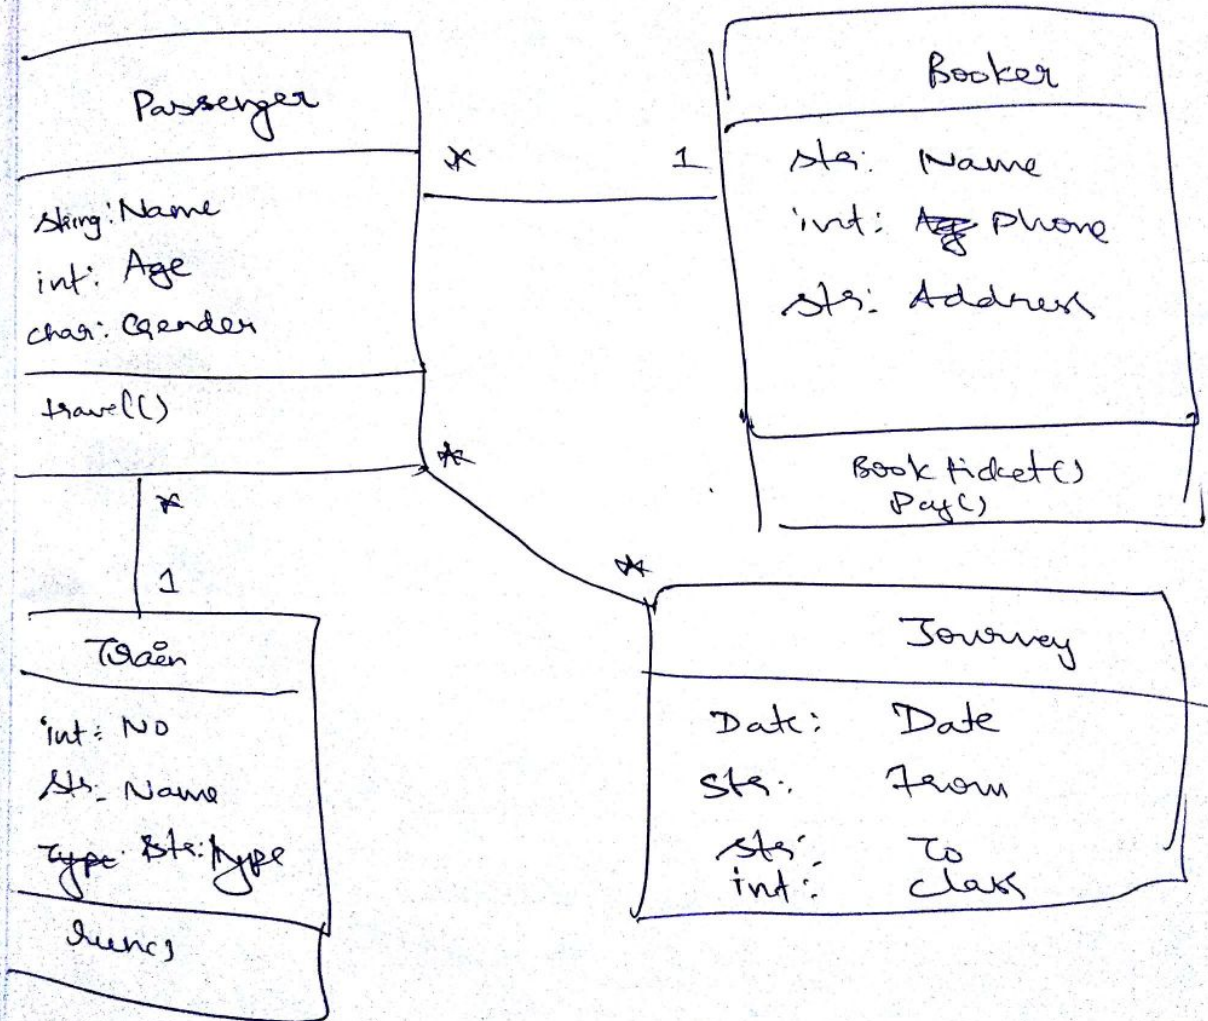 Passenger
string: Name
int: Age
char: Gender
travel()
*
1
*
1
Booker
str: Name
int: Phone
str: Address
Book ticket()
Pay()
*
*
Train
int: No
str: Name
Type Str: type
run()
Journey
Date: Date
Str: From
str: To
int: class